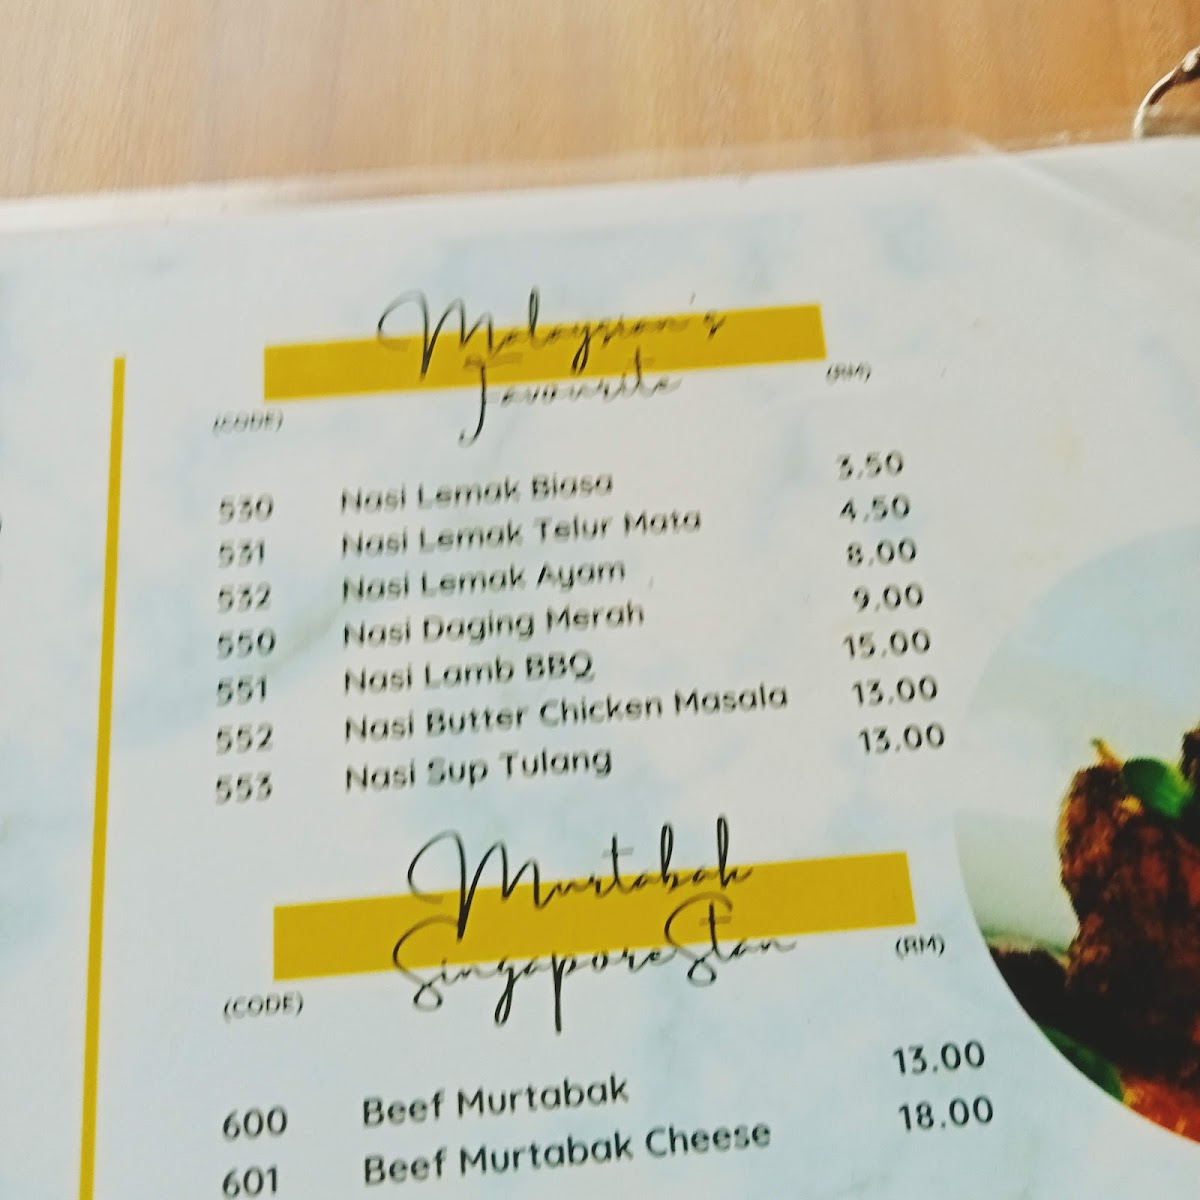 Malaysian's
Favourite
(CODE) (RM)
530 Nasi Lemak Biasa 3.50
531 Nasi Lemak Telur Mata 4.50
532 Nasi Lemak Ayam 8.00
550 Nasi Daging Merah 9.00
551 Nasi Lamb BBQ 15.00
552 Nasi Butter Chicken Masala 13.00
553 Nasi Sup Tulang 13.00
Murtabak
SingaporeStan
(CODE) (RM)
600 Beef Murtabak 13.00
601 Beef Murtabak Cheese 18.00